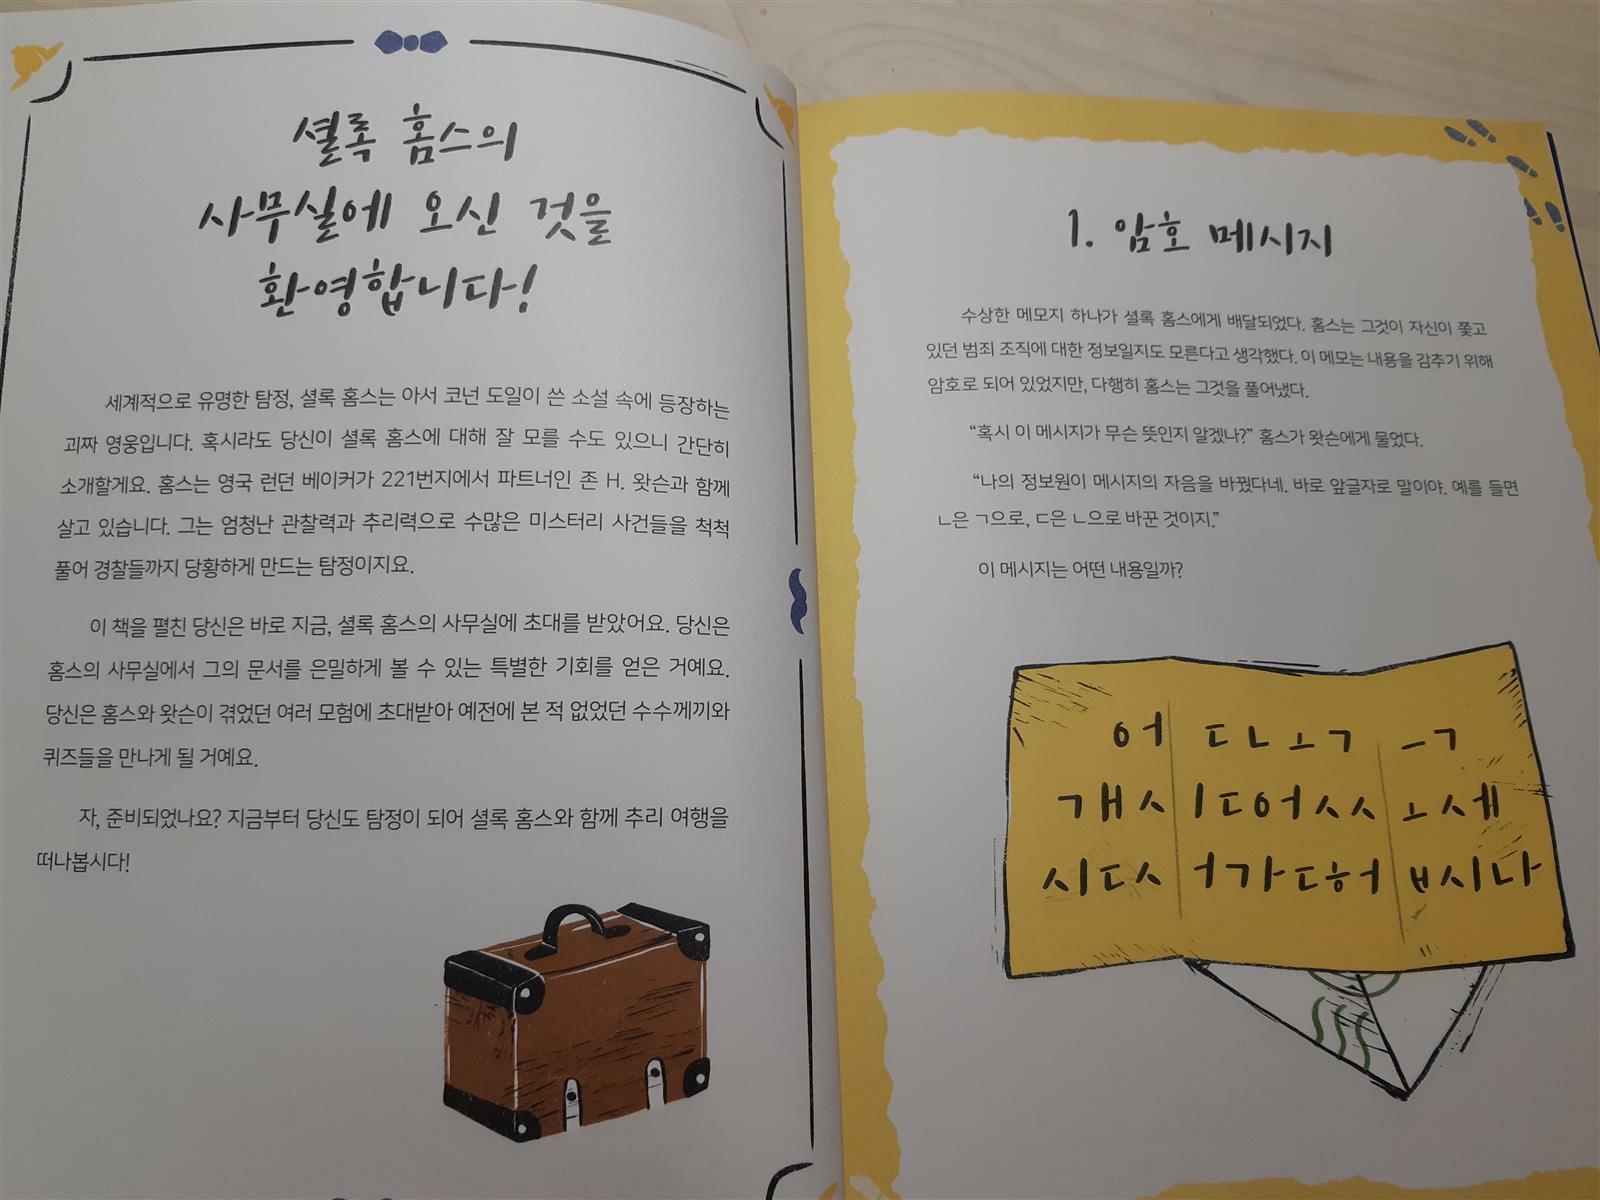 셜록 홈스의
사무실에 오신 것을
환영합니다!
세계적으로 유명한 탐정, 셜록 홈스는 아서 코넌 도일이 쓴 소설 속에 등장하는
괴짜 영웅입니다. 혹시라도 당신이 셜록 홈스에 대해 잘 모를 수도 있으니 간단히
소개할게요. 홈스는 영국 런던 베이커가 221번지에서 파트너인 존 H. 왓슨과 함께
살고 있습니다. 그는 엄청난 관찰력과 추리력으로 수많은 미스터리 사건들을 척척
풀어 경찰들까지 당황하게 만드는 탐정이지요.
이 책을 펼친 당신은 바로 지금, 셜록 홈스의 사무실에 초대를 받았어요. 당신은
홈스의 사무실에서 그의 문서를 은밀하게 볼 수 있는 특별한 기회를 얻은 거예요.
당신은 홈스와 왓슨이 겪었던 여러 모험에 초대받아 예전에 본 적 없었던 수수께끼와
퀴즈들을 만나게 될 거예요.
자, 준비되었나요? 지금부터 당신도 탐정이 되어 셜록 홈스와 함께 추리 여행을
떠나봅시다!
1. 암호 메시지
수상한 메모지 하나가 셜록 홈스에게 배달되었다. 홈스는 그것이 자신이 쫓고
있던 범죄 조직에 대한 정보일지도 모른다고 생각했다. 이 메모는 내용을 감추기 위해
암호로 되어 있었지만, 다행히 홈스는 그것을 풀어냈다.
“혹시 이 메시지가 무슨 뜻인지 알겠나?” 홈스가 왓슨에게 물었다.
“나의 정보원이 메시지의 자음을 바꿨다네. 바로 앞글자로 말이야. 예를 들면
ㄴ은 ㄱ으로, ㄷ은 ㄴ으로 바꾼 것이지.”
이 메시지는 어떤 내용일까?
어 ㄷㄴㅗㄱ ㅡㄱ
ㄱㅐㅅㅣㄷ어ㅅㅅㅗ세
시ㄷㅅㅓ가ㄷㅎㅓㅂ시나